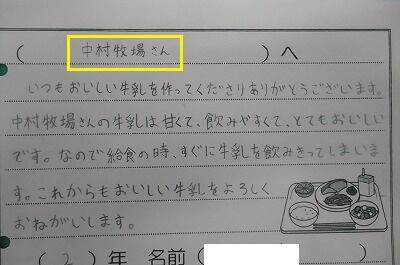 （ 中村牧場さん ）へ
いつもおいしい牛乳を作ってくださりありがとうございます。
中村牧場さんの牛乳は甘くて、飲みやすくて、とてもおいしい
です。なので給食の時、すぐに牛乳を飲みきってしまいま
す。これからもおいしい牛乳をよろしく
おねがいします。
（ 2 ）年 名前（